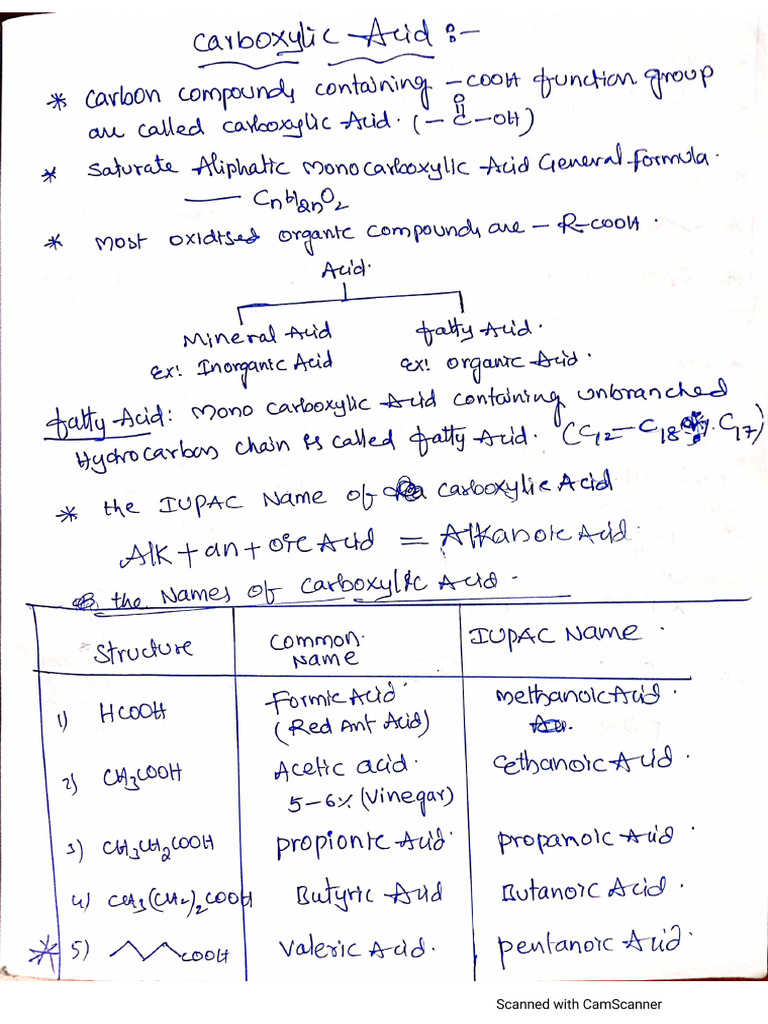 Carboxylic Acid :-
* Carbon compounds containing -COOH function group
are called carboxylic Acid. (-C-OH)
O
* Saturate Aliphatic Monocarboxylic Acid General formula.
— CnH2nO2
* Most oxidised organic compounds are - R-COOH.
Acid.
Mineral Acid fatty Acid.
Ex! Inorganic Acid Ex! Organic Acid.
fatty Acid: Mono carboxylic Acid containing unbranched
Hydrocarbon chain is called fatty Acid. (C12-C18 . C17)
* the IUPAC Name of carboxylic Acid
Alk + an + oic Acid = Alkanoic Acid.
the Names of Carboxylic Acid.
Structure Common Name IUPAC Name.
1) HCOOH Formic Acid (Red Ant Acid) Methanoic Acid.
2) CH3COOH Acetic acid. 5-6% (Vinegar) Ethanoic Acid.
3) CH3CH2COOH propionic Acid. propanoic Acid.
4) CH3(CH2)2COOH Butyric Acid Butanoic Acid.
* 5) COOH Valeric Acid. pentanoic Acid.
Scanned with CamScanner